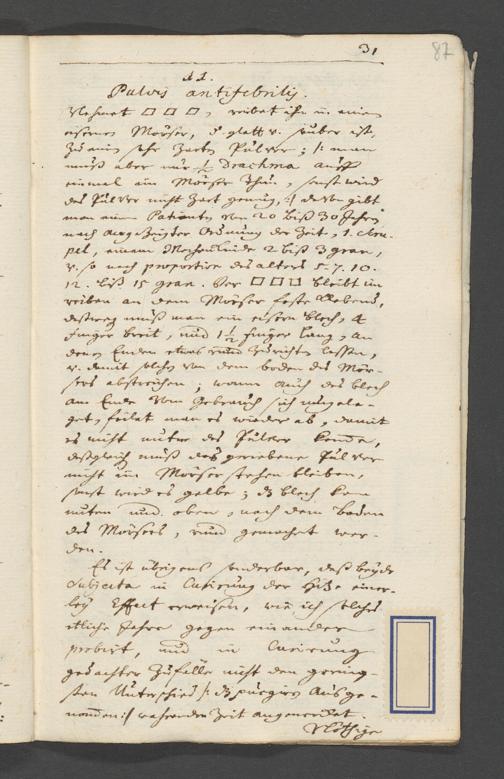 31
87
11.
Pulvis antifebrilis.
Nehmet □ □ □, reibet ihn in einem
eisernen Mörser, d glatt u. sauber ist,
zu einem sehr zarten Pulver; /: man
muß aber nur ½ Drachma auff
einmal im Mörser thun, sonst wird
das Pulver nicht zart genug, :/ davon gibt
man einem Patienten von 20 biß 30 Jahren
nach angezeigter Ordnung der Zeit, 1. Scru-
pel, einem 2 biß 3 gran,
u. so nach proportion des alters 5. 7. 10.
12. biß 15 gran. Der □ □ □ bleibt im
reiben an dem Mörser feste klebend,
deßweg muß man ein eisern blech, 4
finger breit, und 1½ finger lang, an
denen Enden etwas rund zurichten lassen,
u. damit solches von dem boden des Mör-
sers abstreichen; wann auch das blech
am Ende vom Gebrauch sich
feilet man es wieder ab, damit
es nicht unter das Pulver komme,
deßgleich muß das geriebene Pulver
nicht im Mörser stehen bleiben,
sonst wird es gelbe; dz blech kan
unten und oben, nach dem boden
des Mörsers, rund gemacht wer-
den.
Es ist übrigens sonderbar, daß beyde
Subjecta in Curirung der Hitze einer-
ley Effect erweisen, wie ich solches
etliche Jahre gegen einander
probirt, und in Curirung
gedachter Zufälle nicht den gering-
sten Unterschied /: dz purgiren ausge-
nommen :/ währender Zeit angemerket.
Nöthige